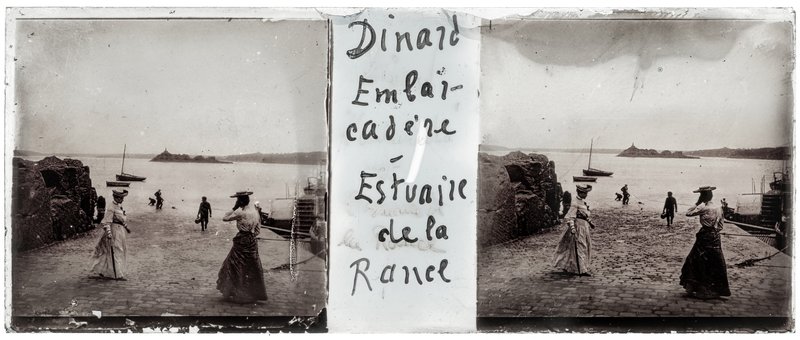 Dinard
Embar-
cadère
-
Estuaire
de la
Rance